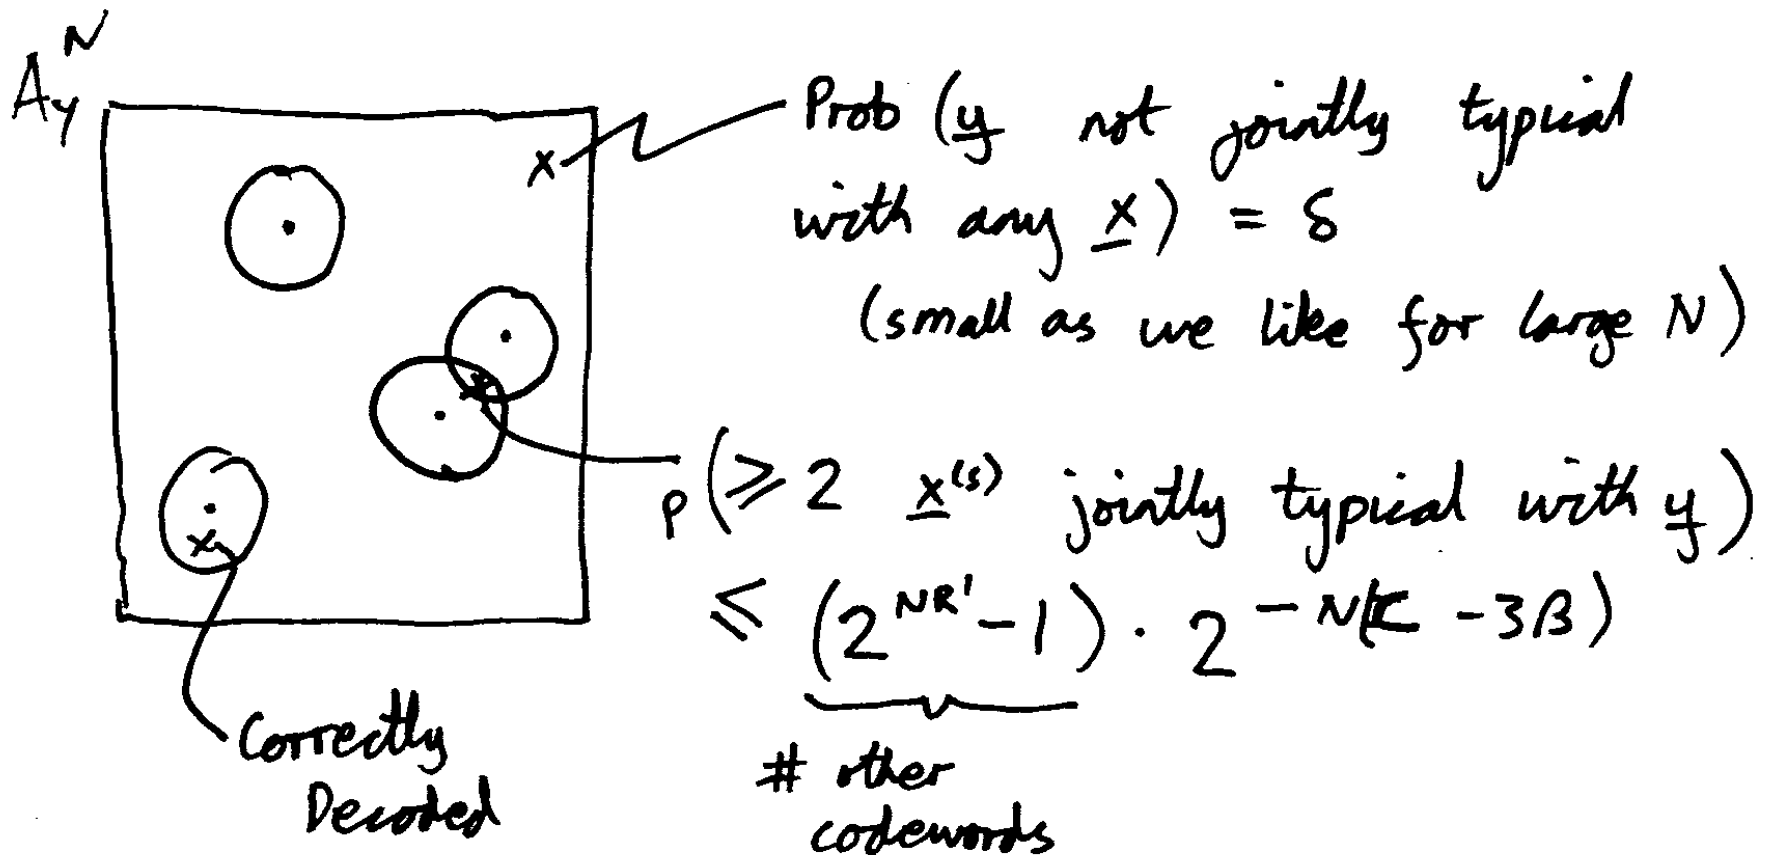 A_Y^N
Prob (y not jointly typical
with any x) = δ
(small as we like for large N)
P (≥ 2 x^(s) jointly typical with y)
≤ (2^{NR'} - 1) · 2^{-N(C - 3β)}
Correctly
Decoded
# other
codewords